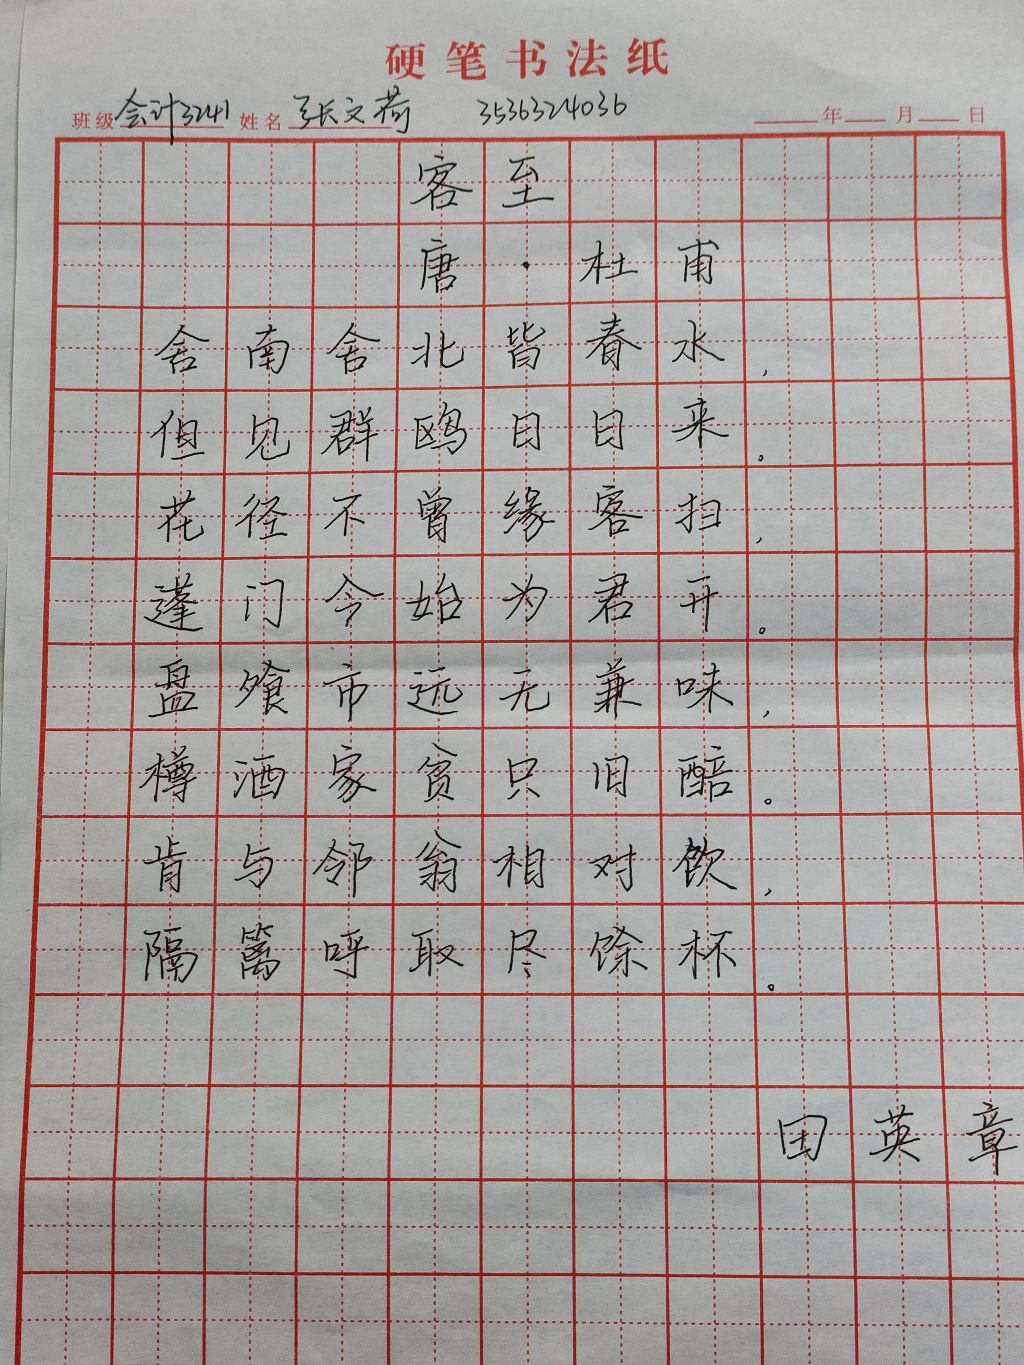 硬笔书法纸
班级 会计3241 姓名 张文荷 3536324036 年 月 日
客至
唐·杜甫
舍南舍北皆春水，
但见群鸥日日来。
花径不曾缘客扫，
蓬门今始为君开。
盘飧市远无兼味，
樽酒家贫只旧醅。
肯与邻翁相对饮，
隔篱呼取尽馀杯。
田英章